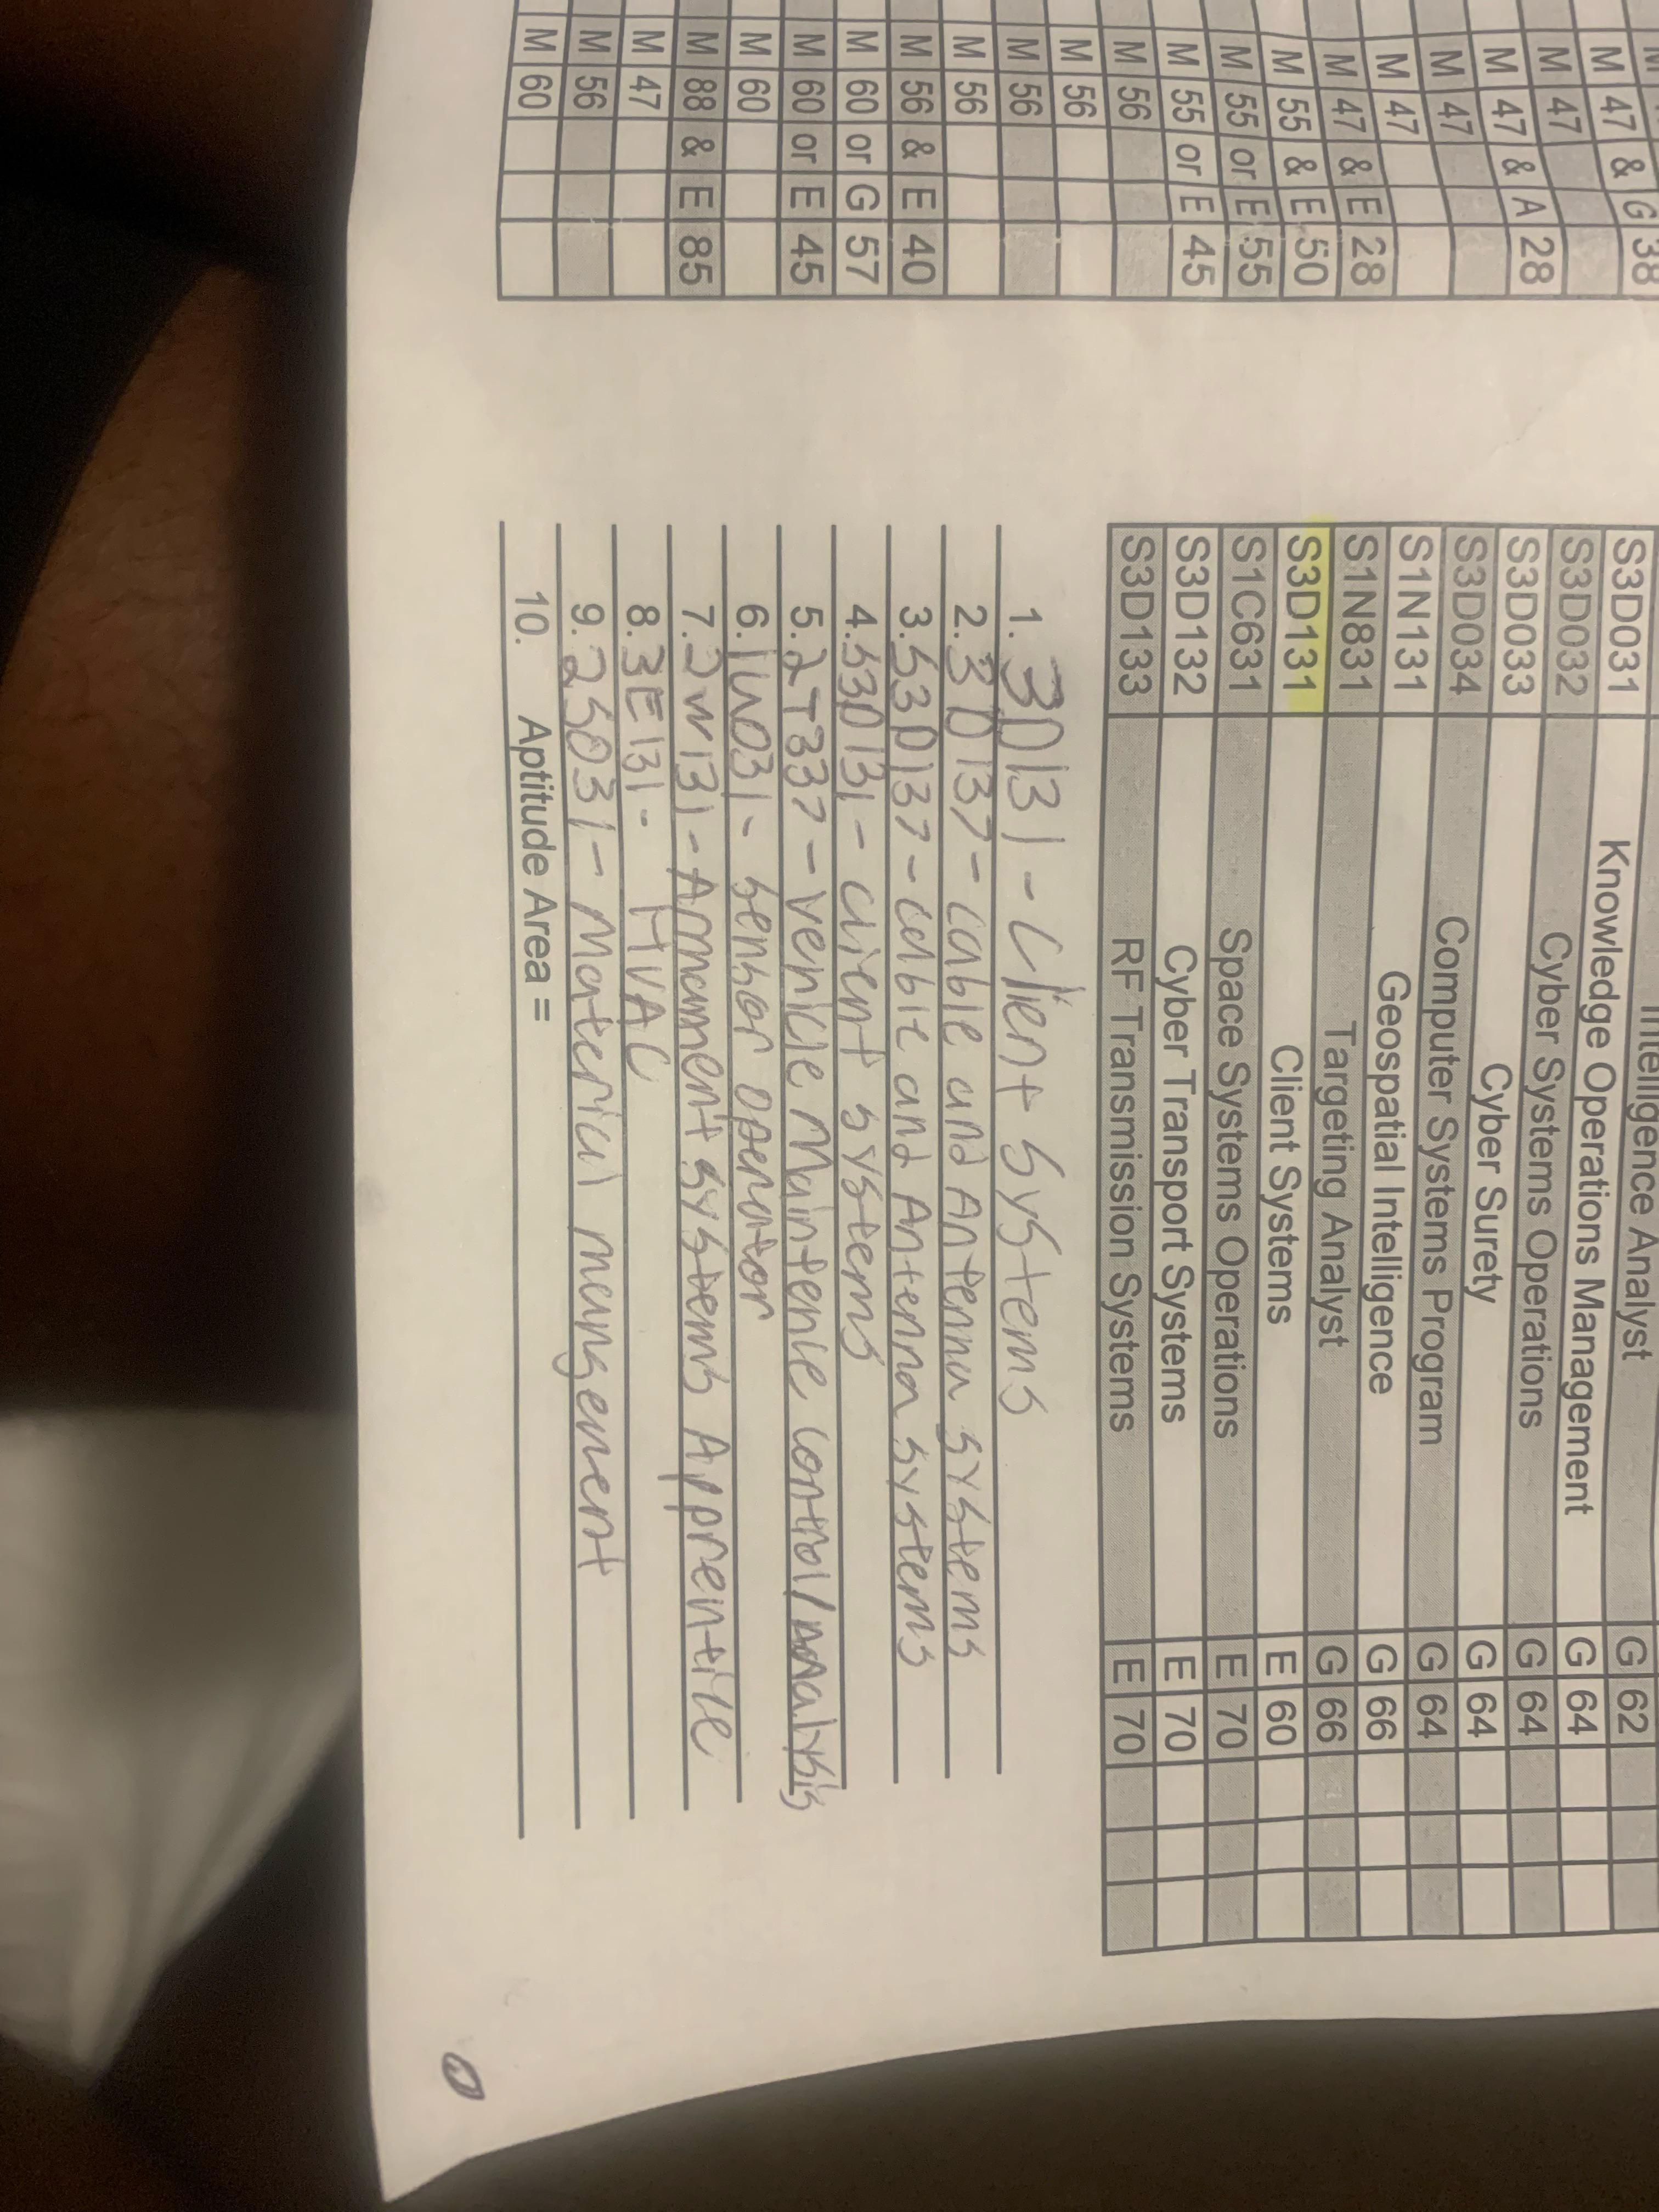 M 47 & G 38
M 47
M 47 & A 28
M 47
M 47
M 47 & E 28
M 55 & E 50
M 55 or E 55
M 55 or E 45
M 56
M 56
M 56
M 56
M 56 & E 40
M 60 or G 57
M 60 or E 45
M 60
M 88 & E 85
M 47
M 56
M 60
Intelligence Analyst G 62
S3D031 Knowledge Operations Management G 64
S3D032 Cyber Systems Operations G 64
S3D033 Cyber Surety G 64
S3D034 Computer Systems Program G 64
S1N131 Geospatial Intelligence G 66
S1N831 Targeting Analyst G 66
S3D131 Client Systems E 60
S1C631 Space Systems Operations E 70
S3D132 Cyber Transport Systems E 70
S3D133 RF Transmission Systems E 70
1. 3D131 - Client Systems
2. 3D137 - Cable and Antenna systems
3. S3D137 - Cable and Antenna systems
4. S3D131 - client systems
5. 2T337 - Vehicle Maintence control/analysis
6. 1U031 - Sensor operator
7. 2W131 - Armament systems Apprentice
8. 3E131 - HVAC
9. 2S031 - Material mangement
10. Aptitude Area =